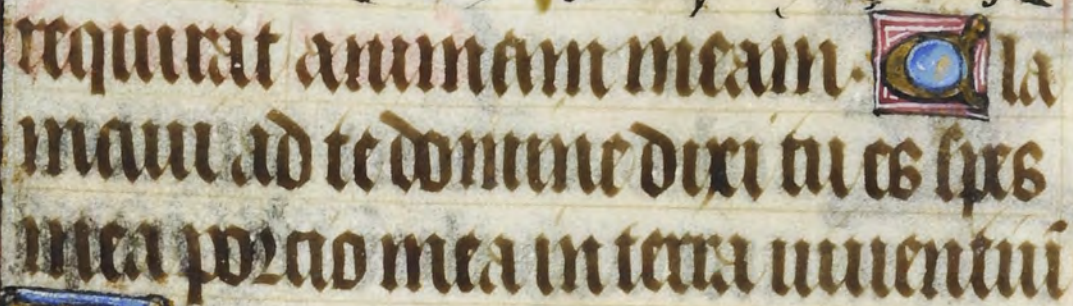 requirat animam meam. Cla
maui ad te domine dixi tu es spes
mea porcio mea in terra uiuentiū